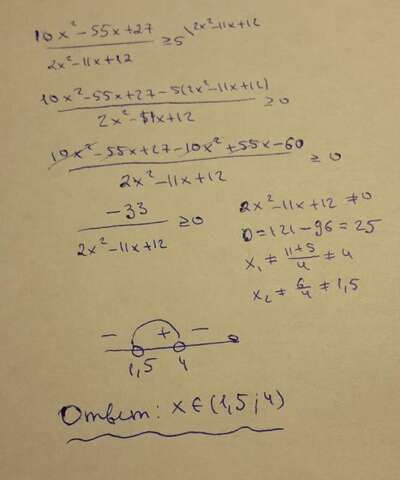 10x²-55x+27 / 2x²-11x+12 ≥5 \2x²-11x+12
10x²-55x+27-5(2x²-11x+12) / 2x²-11x+12 ≥0
10x²-55x+27-10x²+55x-60 / 2x²-11x+12 ≥0
-33 / 2x²-11x+12 ≥0
2x²-11x+12 ≠0
D=121-96=25
x₁ ≠ 11+5 / 4 ≠ 4
x₂ ≠ 6/4 ≠ 1,5
- + -
1,5 4
Ответ: x∈(1,5;4)